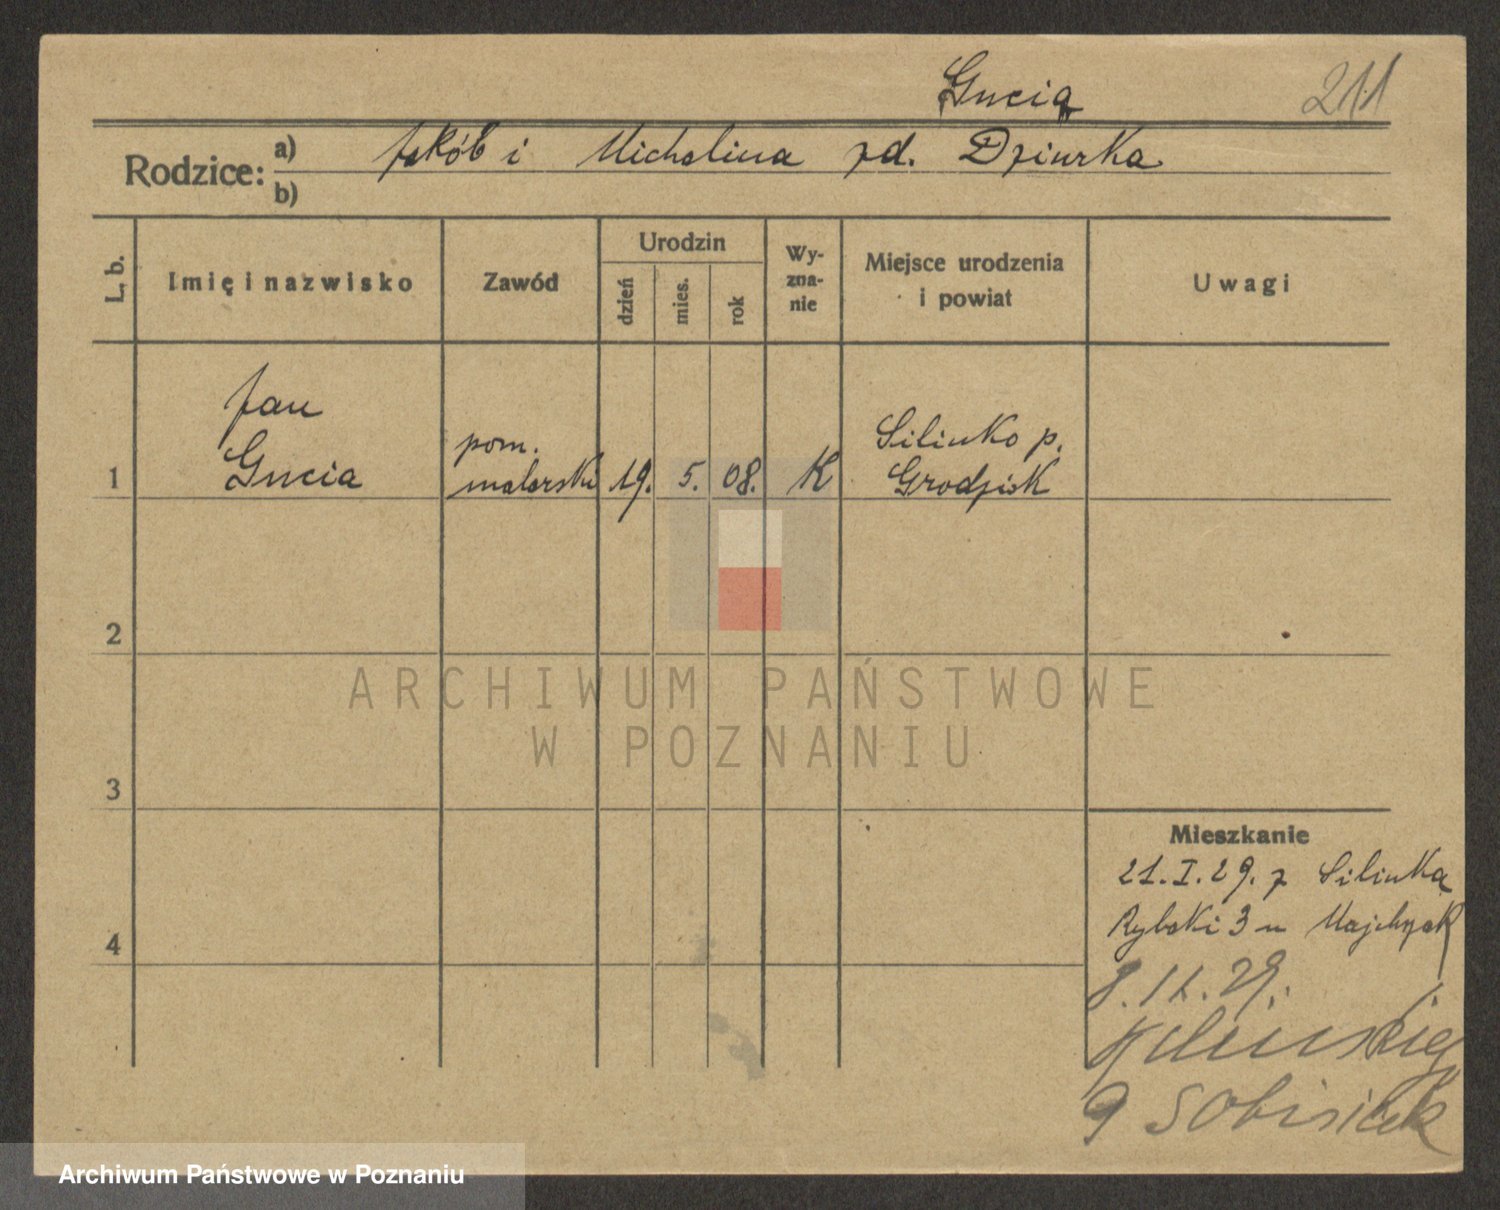 Gucia
211
Rodzice: a) Jakób i Michalina zd. Dziurka
b)
L. b. Imię i nazwisko Zawód Urodzin dzień mies. rok Wy-zna-nie Miejsce urodzenia i powiat Uwagi
Jan
Gucia
pom.
malarski
1 19. 5. 08. K
Silinko p.
Grodzisk
2
ARCHIWUM PAŃSTWOWE
W POZNANIU
3
4
Mieszkanie
21. I. 29. z Silinka
Rybaki 3 u Majchrzak
8. 11. 29.
9 Sobisiak
Archiwum Państwowe w Poznaniu